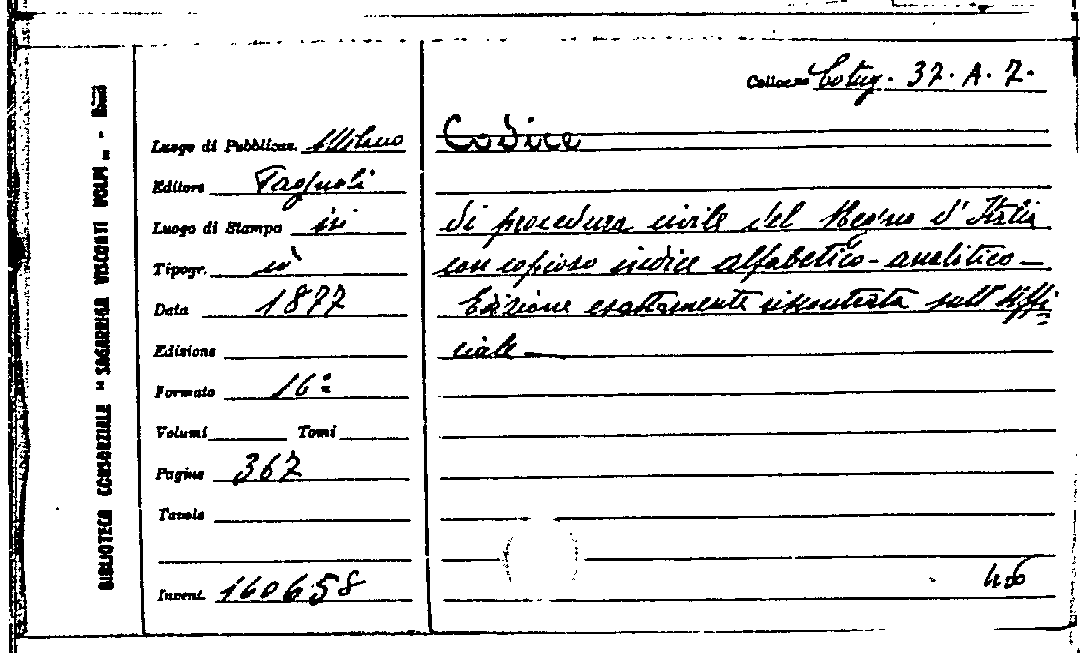 BIBLIOTECA CONSORZIALE "SAGARRIGA VISCONTI VOLPI" - BARI
Collocaz. Cotug. 37. A. 7.
Luogo di Pubblicaz. Milano
Editore Pagnoli
Luogo di Stampa ivi
Tipogr. id
Data 1877
Edizione
Formato 16º
Volumi Tomi
Pagine 367
Tavole
Invent. 160658
Codice
di procedura civile del Regno d'Italia
con copioso indice alfabetico-analitico—
Edizione esattamente riscontrata sull'Uffi
ciale—